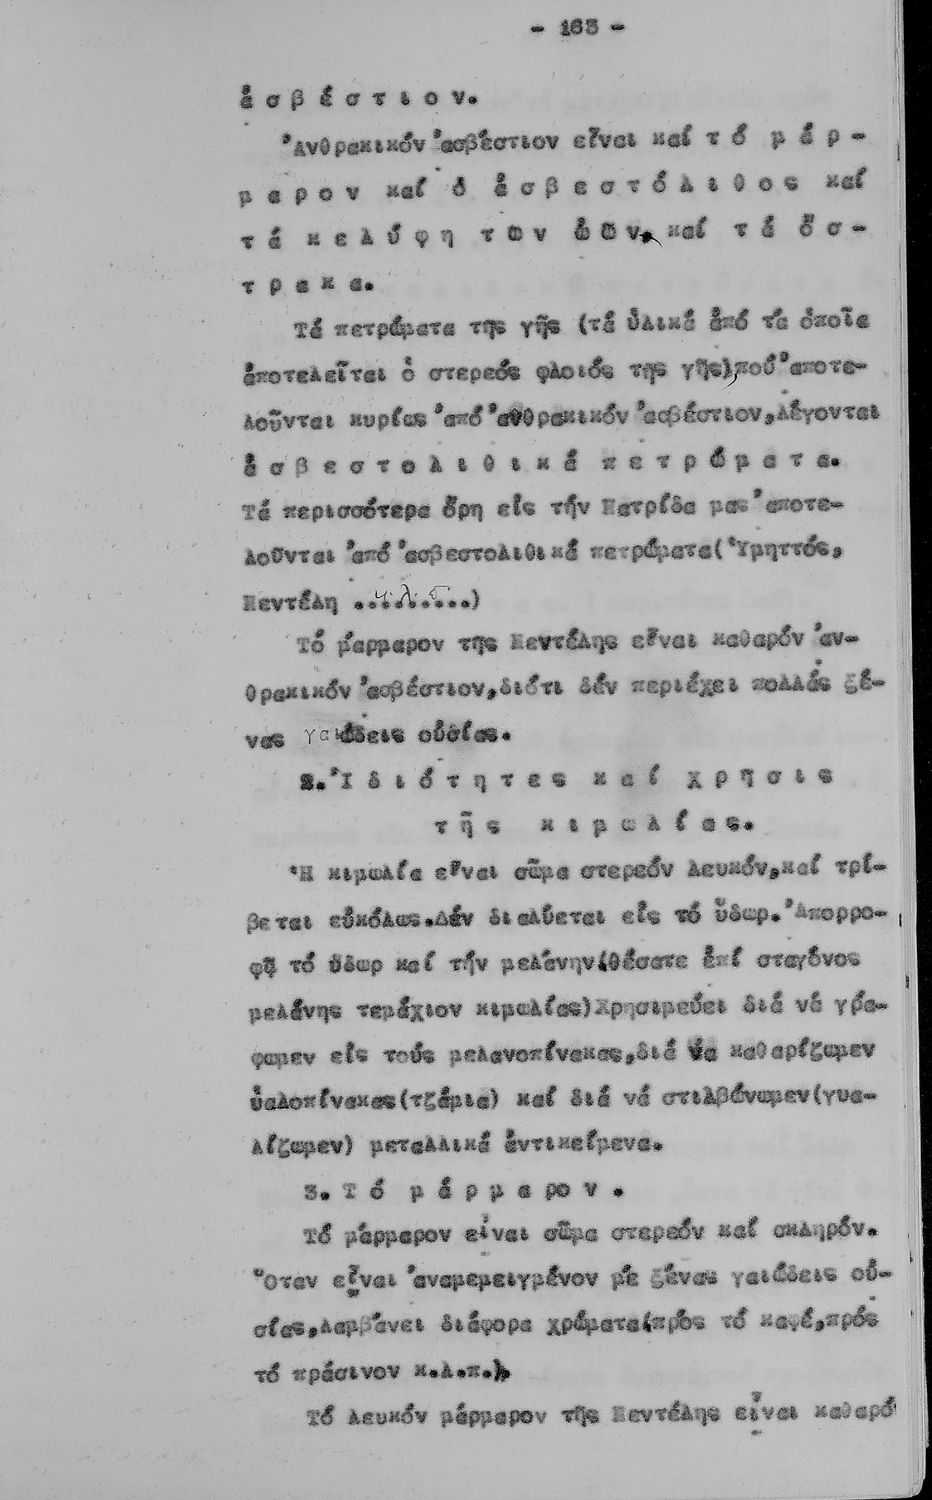 - 163 -
ἀ σ β έ σ τ ι ο ν.
Ἀνθρακικόν ἀσβέστιον εἶναι καί τ ό μ ά ρ -
μ α ρ ο ν καί ὁ ἀ σ β ε σ τ ό λ ι θ ο ς καί
τ ά κ ε λ ύ φ η τ ῶ ν ὠ ῶ ν. καί τ ά ὄ σ -
τ ρ α κ α.
Τά πετρώματα τῆς γῆς (τά ὑλικά ἀπό τά ὁποῖα
ἀποτελεῖται ὁ στερεός φλοιός τῆς γῆς),πού ἀποτε-
λοῦνται κυρίως ἀπό ἀνθρακικόν ἀσβέστιον,λέγονται
ἀ σ β ε σ τ ο λ ι θ ι κ ά π ε τ ρ ώ μ α τ α.
Τά περισσότερα ὄρη εἰς τήν Πατρίδα μας ἀποτε-
λοῦνται ἀπό ἀσβεστολιθικά πετρώματα(Ὑμηττός,
Πεντέλη ..........)
Τό μάρμαρον τῆς Πεντέλης εἶναι καθαρόν ἀν-
θρακικόν ἀσβέστιον,διότι δέν περιέχει πολλάς ξέ-
νας γαιώδεις οὐσίας.
2. Ἰ δ ι ό τ η τ ε ς κ α ί χ ρ ῆ σ ι ς
τ ῆ ς κ ι μ ω λ ί α ς.
Ἡ κιμωλία εἶναι σῶμα στερεόν λευκόν,καί τρί-
βεται εὐκόλως.Δέν διαλύεται εἰς τό ὕδωρ.Ἀπορρο-
φᾷ τό ὕδωρ καί τήν μελάνην(θέσατε ἐπί σταγόνος
μελάνης τεμάχιον κιμωλίας)Χρησιμεύει διά νά γρά-
φωμεν εἰς τούς μελανοπίνακας,διά νά καθαρίζωμεν
ὑαλοπίνακας(τζάμια) καί διά νά στιλβώνωμεν(γυα-
λίζωμεν) μεταλλικά ἀντικείμενα.
3. Τ ό μ ά ρ μ α ρο ν .
Τό μάρμαρον εἶναι σῶμα στερεόν καί σκληρόν.
Ὅταν εἶναι ἀναμεμειγμένον μέ ξένας γαιώδεις οὐ-
σίας,λαμβάνει διάφορα χρώματα(πρός τό καφέ,πρός
τό πράσινον κ.λ.π.).
Τό λευκόν μάρμαρον τῆς Πεντέλης εἶναι καθαρό